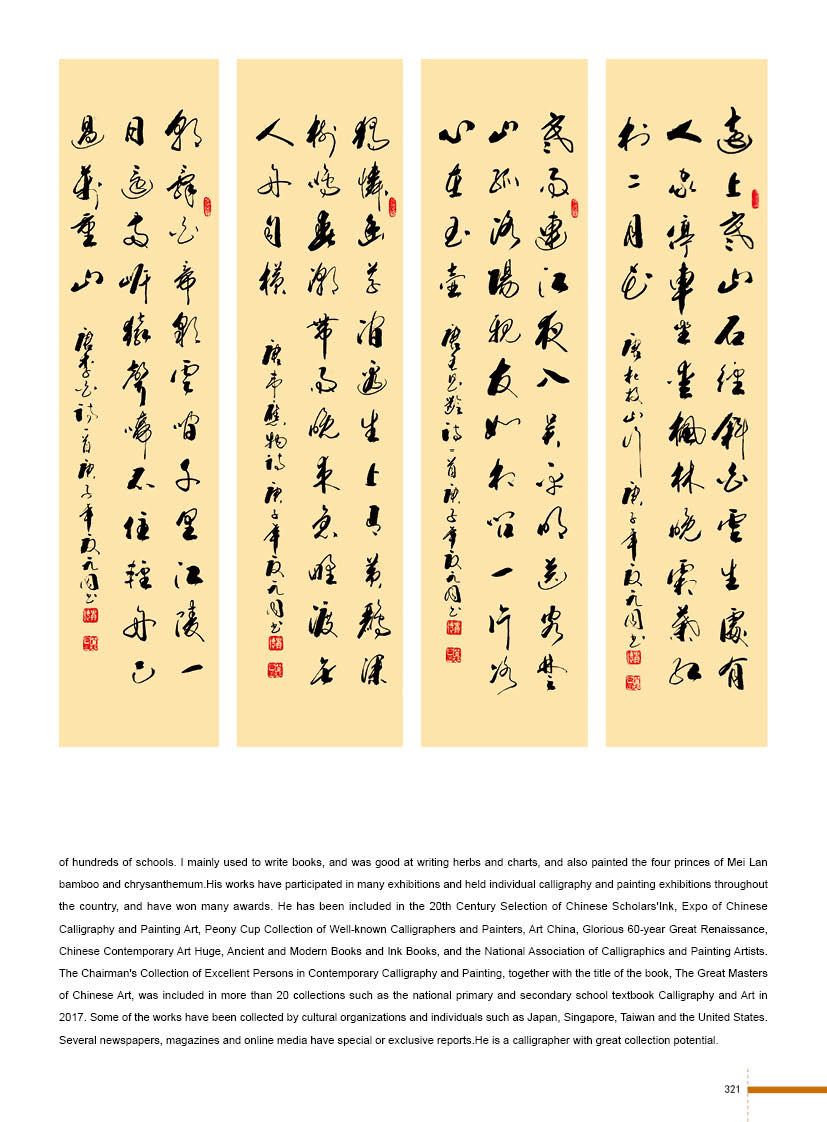 遠上寒山石徑斜白雲生處有
人家停車坐愛楓林晚霜葉紅
於二月花 唐杜牧山行 庚子年 书
寒雨連江夜入吳平明送客楚
山孤洛陽親友如相問一片冰
心在玉壺 唐王昌齡詩一首庚子年 书
獨憐幽草澗邊生上有黃鸝深
樹鳴春潮帶雨晚來急野渡無
人舟自橫 唐韋應物詩 庚子年 书
朝辭白帝彩雲間千里江陵一
日還兩岸猿聲啼不住輕舟已
過萬重山 唐李白詩一首庚子年 书
of hundreds of schools. I mainly used to write books, and was good at writing herbs and charts, and also painted the four princes of Mei Lan
bamboo and chrysanthemum.His works have participated in many exhibitions and held individual calligraphy and painting exhibitions throughout
the country, and have won many awards. He has been included in the 20th Century Selection of Chinese Scholars'Ink, Expo of Chinese
Calligraphy and Painting Art, Peony Cup Collection of Well-known Calligraphers and Painters, Art China, Glorious 60-year Great Renaissance,
Chinese Contemporary Art Huge, Ancient and Modern Books and Ink Books, and the National Association of Calligraphics and Painting Artists.
The Chairman's Collection of Excellent Persons in Contemporary Calligraphy and Painting, together with the title of the book, The Great Masters
of Chinese Art, was included in more than 20 collections such as the national primary and secondary school textbook Calligraphy and Art in
2017. Some of the works have been collected by cultural organizations and individuals such as Japan, Singapore, Taiwan and the United States.
Several newspapers, magazines and online media have special or exclusive reports.He is a calligrapher with great collection potential.
321